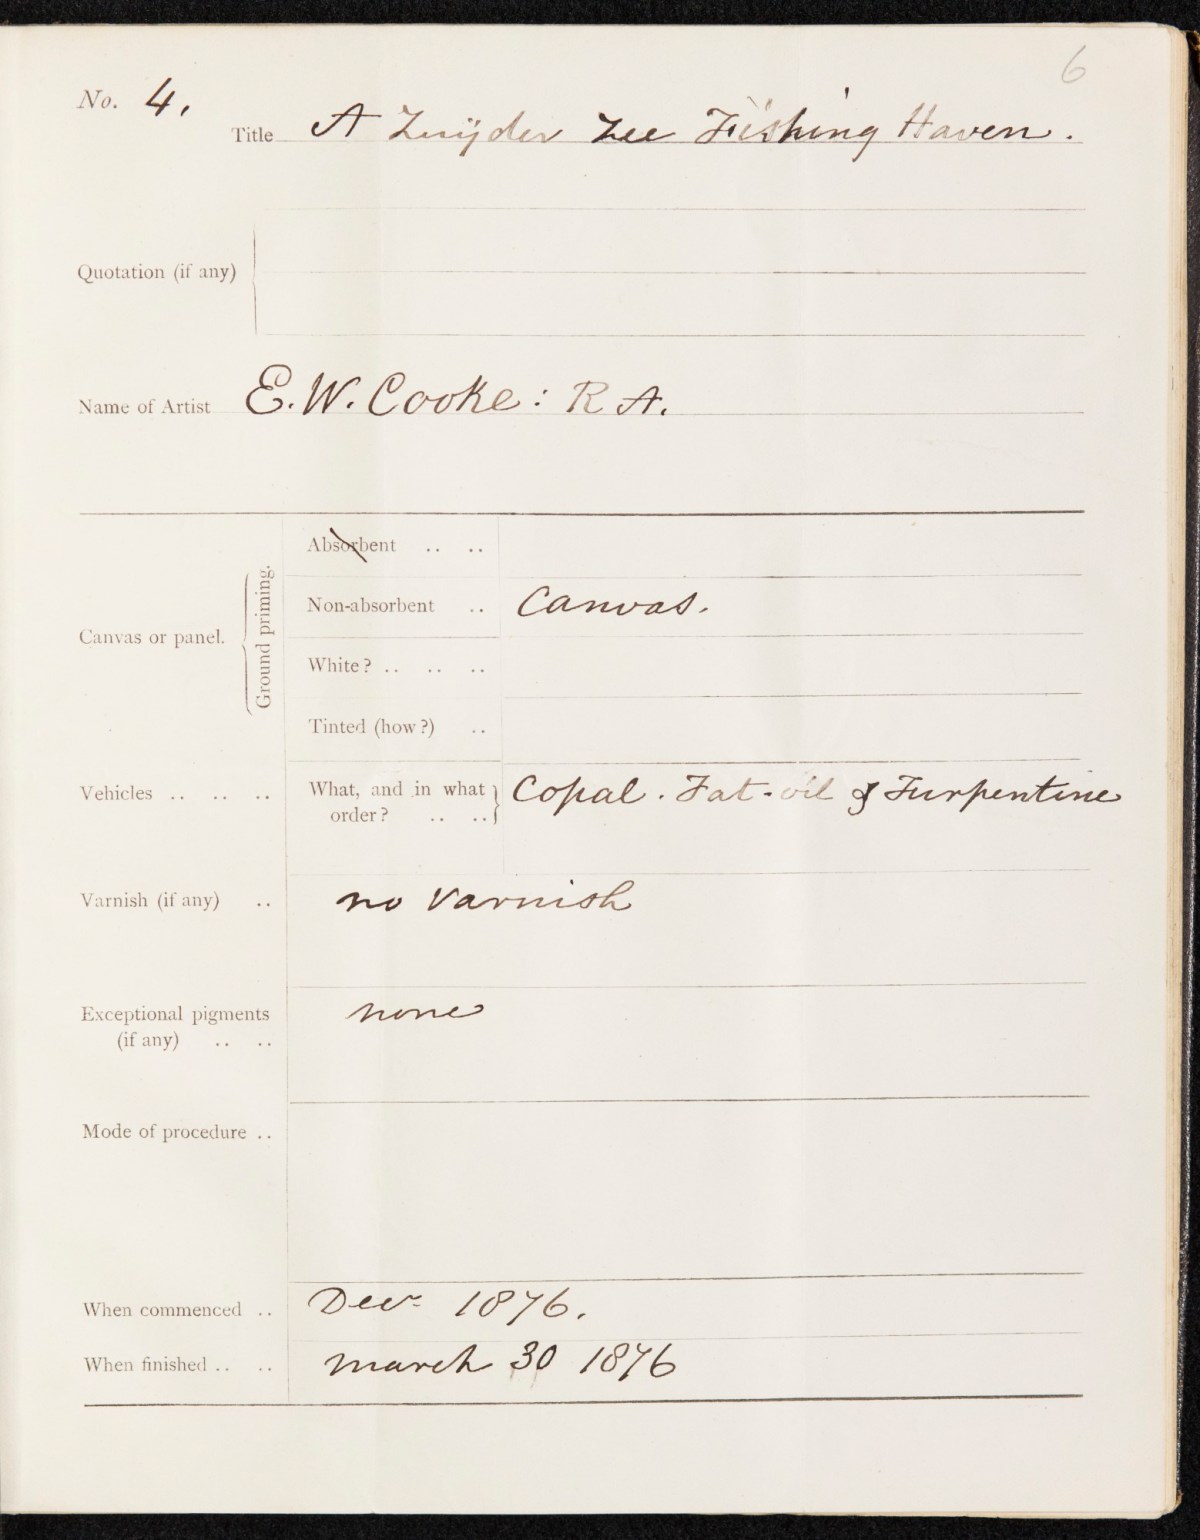 6
No. 4.
Title A Zuÿder Zee Fishing Haven.
Quotation (if any)
Name of Artist E. W. Cooke: R A.
Canvas or panel.
Ground priming.
Absorbent .. ..
Non-absorbent .. Canvas.
White? .. .. ..
Tinted (how?) ..
Vehicles .. .. ..
What, and in what order? .. .. Copal. Fat-oil & Turpentine
Varnish (if any) .. no Varnish
Exceptional pigments
(if any) .. .. none
Mode of procedure ..
When commenced .. Decr 1876.
When finished .. .. March 30 1876